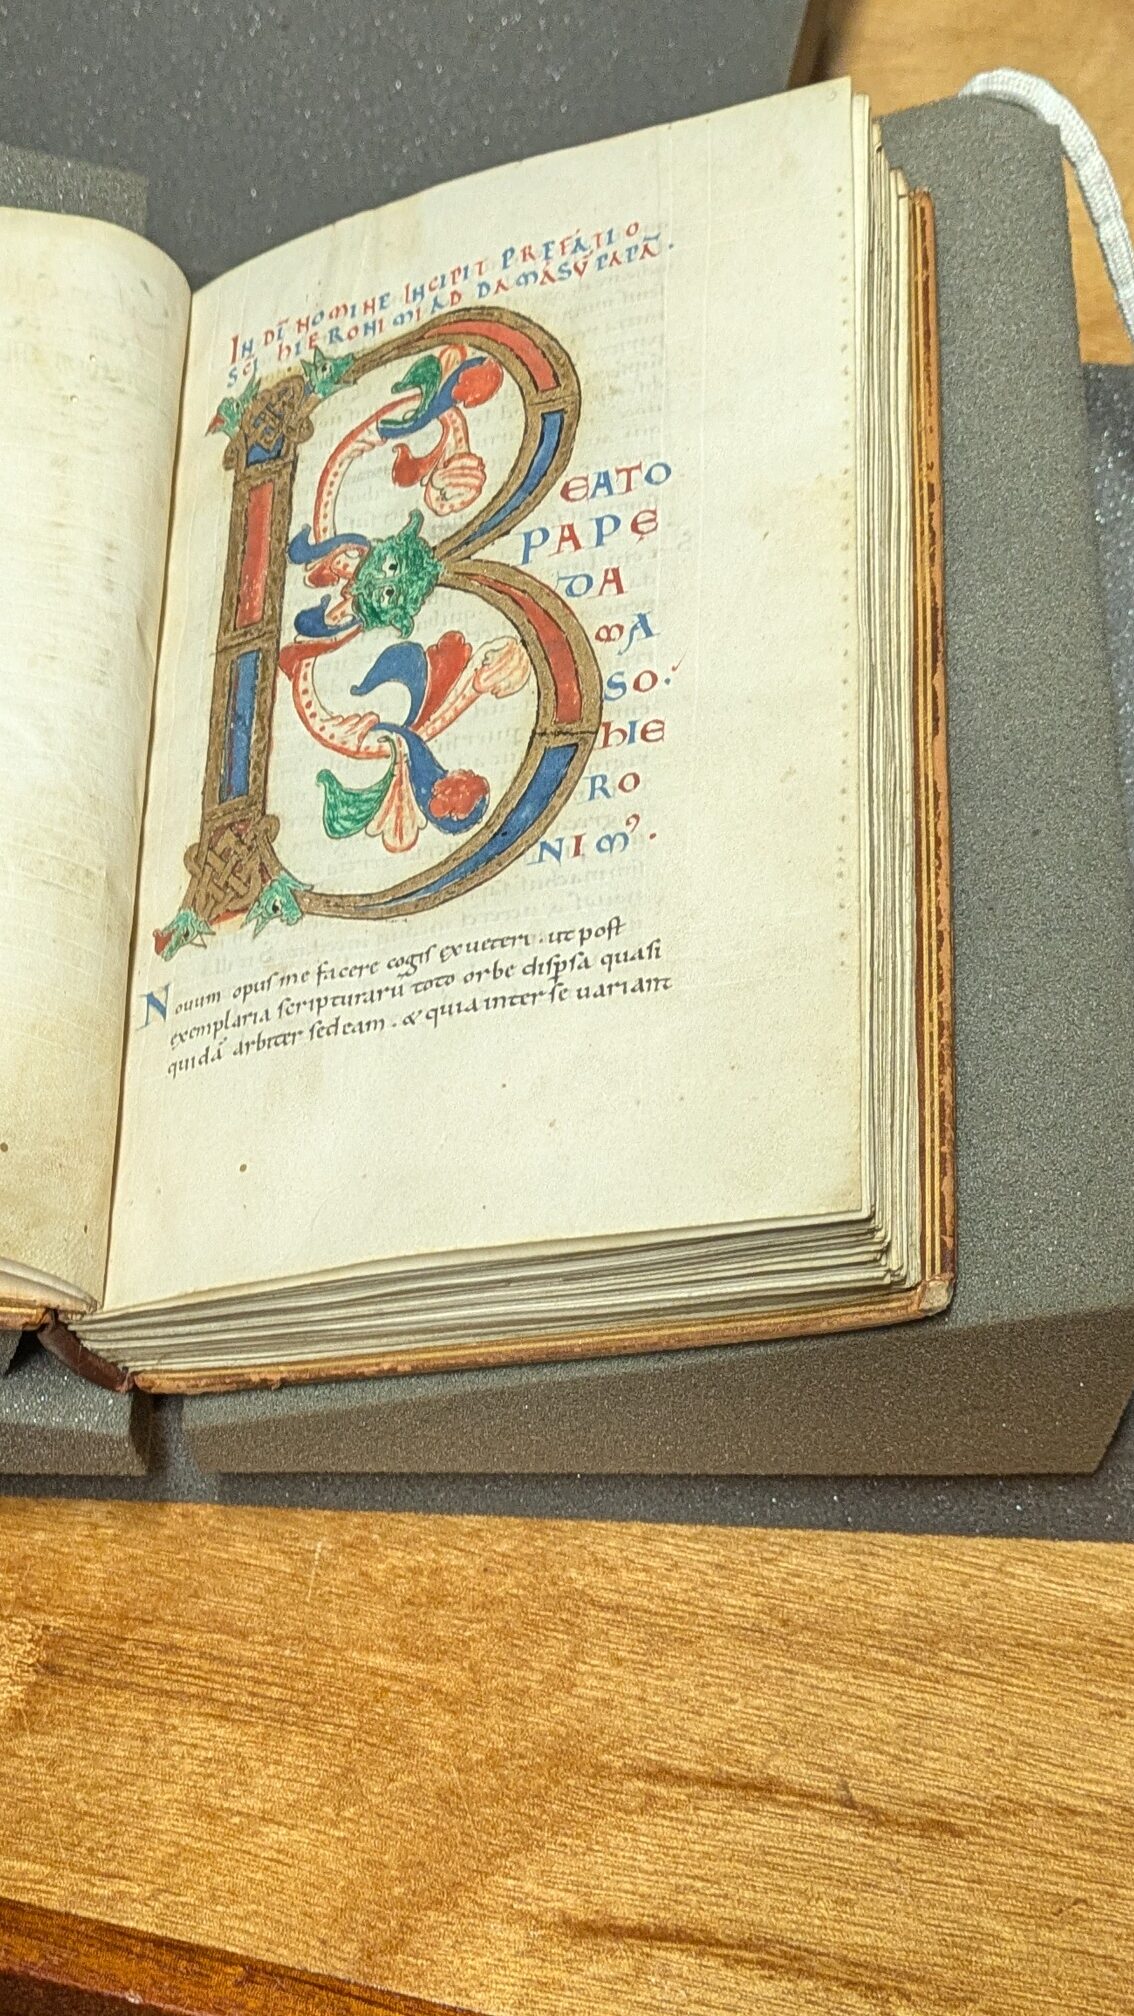 IN DI̅ NOMINE INCIPIT PREFATIO
SC̅I HIERONIMI AD DAMASV̅ PAPA̅.
BEATO
PAPĘ
DA
MA
SO.
HIE
RO
NIMꝰ.
Nouum opus me facere cogis ex ueteri. ut post
exemplaria scripturaru̅ toto orbe dispsa quasi
quida̅ arbiter sedeam. & quia inter se uariant